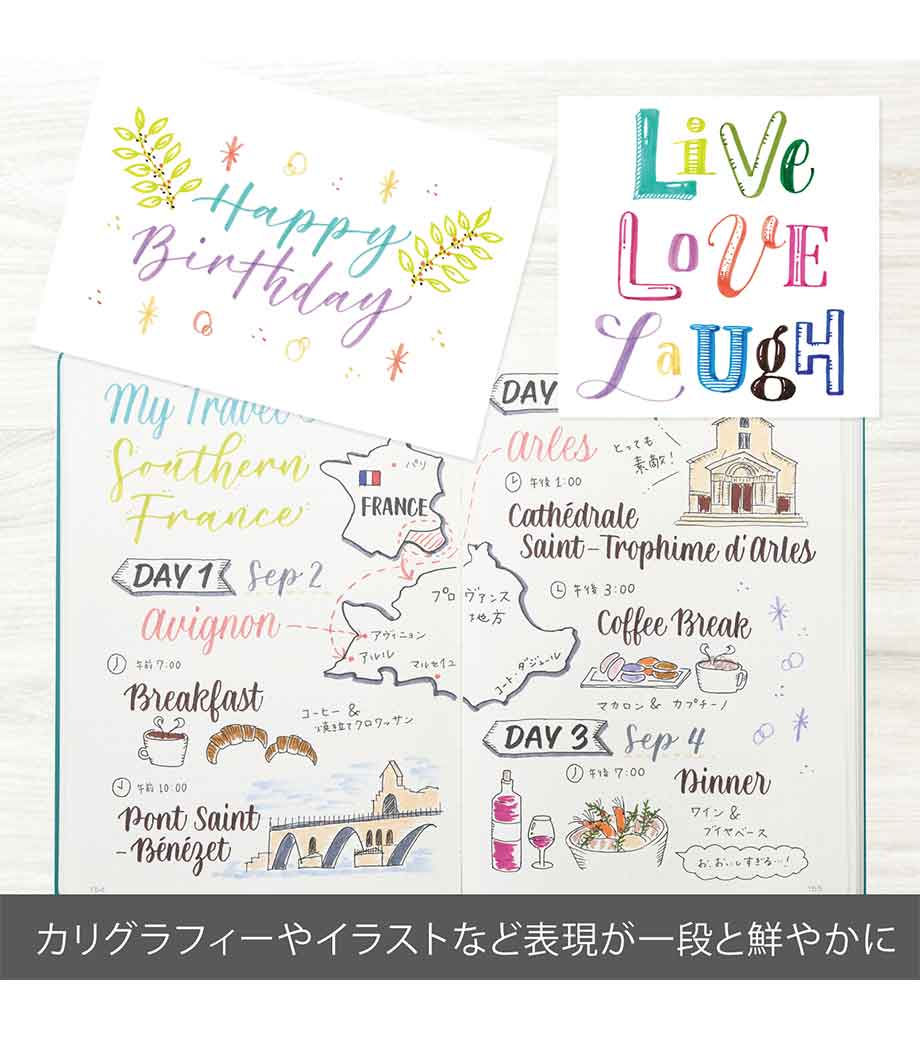 Happy
Birthday
LiVe
LOVE
LaUgH
My Travel
Southern
France
パリ
FRANCE
DAY 1 Sep 2
avignon
午前 7:00
Breakfast
コーヒー &
焼き立てクロワッサン
午前 10:00
Pont Saint
-Bénézet
プロヴァンス
地方
アヴィニョン
アルル
マルセイユ
コート・ダジュール
154
DAY
arles
とっても
素敵!
午後 1:00
Cathédrale
Saint-Trophime d'Arles
午後 3:00
Coffee Break
マカロン & カプチーノ
DAY 3 Sep 4
午後 7:00
Dinner
ワイン &
ブイヤベース
お、おいしすぎる…!
155
カリグラフィーやイラストなど表現が一段と鮮やかに